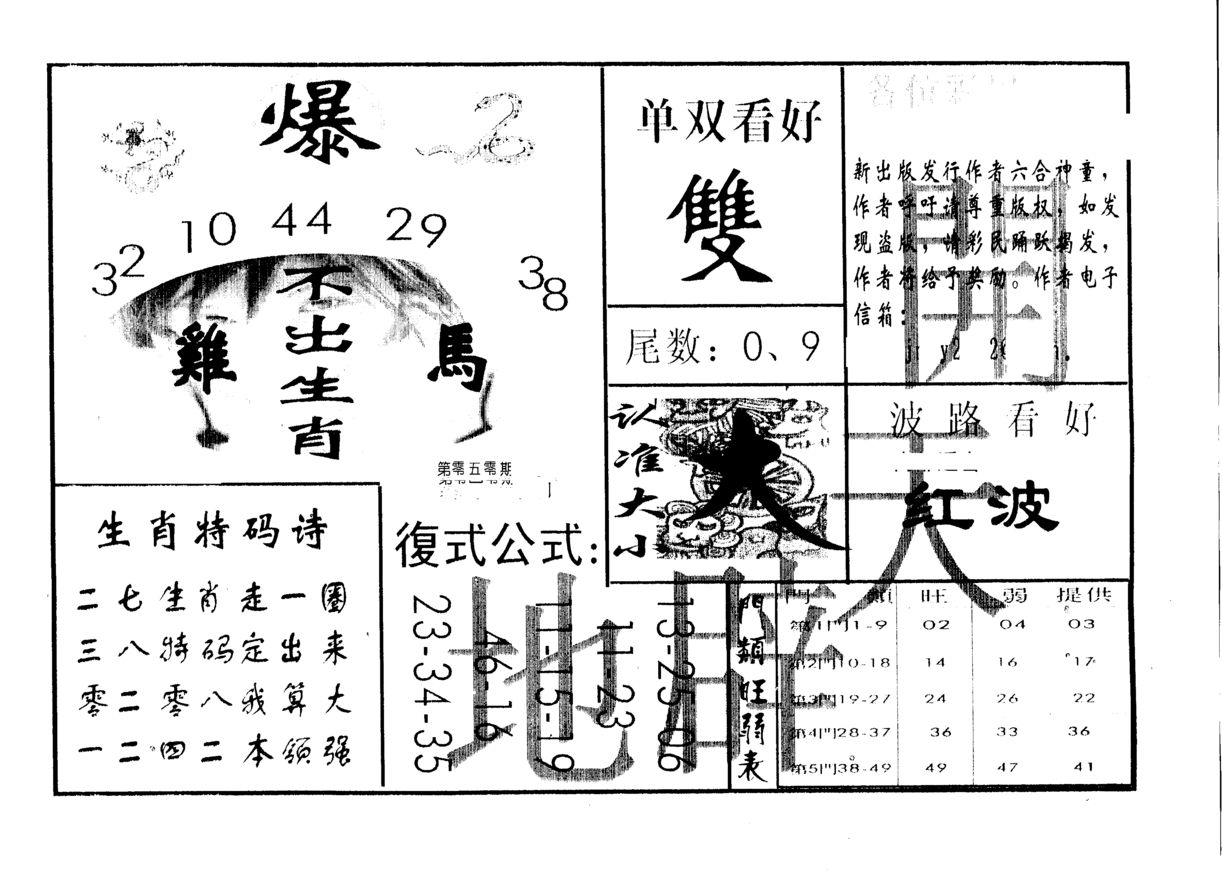 爆
32 10 44 29 38
不出生肖
雞
馬
第零五零期
单双看好
雙
尾数：0、9
各位彩
新出版发行作者六合神童，
作者呼吁请尊重版权，如发
现盗版，请彩民踊跃揭发，
作者将给予奖励。作者电子
信箱：
開
认准大小
大
波路看好
红波
天
生肖特码诗
二七生肖走一圈
三八特码定出来
零二零八我算大
一二四二本领强
復式公式：
23-34-35
46-16
11-15-19
11-23
13-25-06
地 
門類旺弱表
門類 旺 弱 提供
第1門1-9 02 04 03
第2門10-18 14 16 17
第3門19-27 24 26 22
第4門28-37 36 33 36
第5門38-49 49 47 41